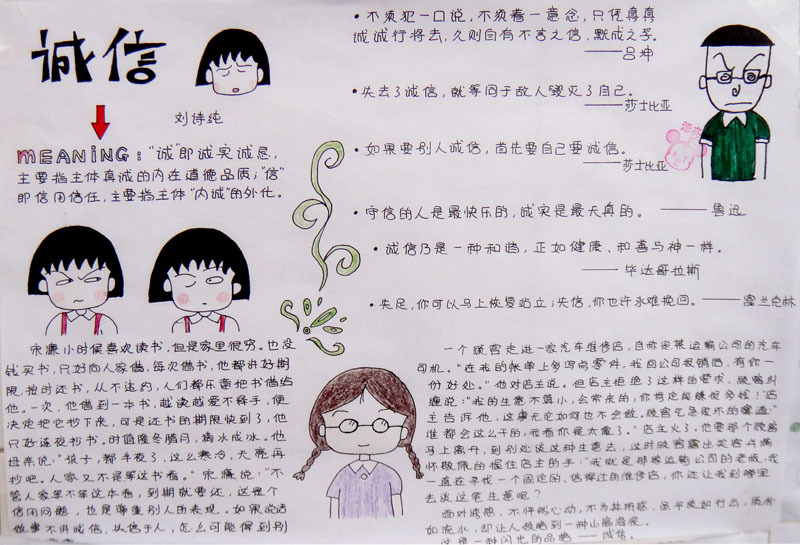 诚信
刘诗纯
MEANING:"诚"即诚实诚恳,
主要指主体真诚的内在道德品质;"信"
即信用信任,主要指主体"内诚"的外化。
·不须犯一口说,不须着一意念,只凭真真
诚诚行将去,久则自有不言之信,默成之孚。
——吕坤
·失去了诚信,就等同于敌人毁灭了自己。
——莎士比亚
·如果要别人诚信,首先要自己要诚信。
——莎士比亚
·守信的人是最快乐的,诚实是最天真的。 ——鲁迅
·诚信乃是一种和谐,正如健康、和善与神一样。
——毕达哥拉斯
·失足,你可以马上恢复站立;失信,你也许永难挽回。——富兰克林
宋濂小时候喜欢读书,但是家里很穷。也没
钱买书,只好向人家借,每次借书,他都讲好期
限,按时还书,从不违约,人们都乐意把书借给
他。一次,他借到一本书,越读越爱不释手,便
决定把它抄下来,可是还书的期限快到了,他
只好连夜抄书。时值隆冬腊月,滴水成冰。他
母亲说:"孩子,都半夜了,这么寒冷,天亮再
抄吧。人家又不是等这书看。"宋濂说:"不
管人家等不等这本看,到期就要还,这是个
信用问题,也是尊重别人的表现。如果说话
做事不讲诚信,失信于人,怎么可能得到别
一个顾客走进一家汽车维修店,自称是某运输公司的汽车
司机。"在我的帐单上多写点零件,我回公司报销后,有你一
份好处。"他对店主说。但店主拒绝了这样的要求,顾客纠
缠说:"我的生意不算小,会常来的,你肯定能赚很多钱!"店
主告诉他,这事无论如何也不会做。顾客气急败坏的嚷道:"
谁都会这么干的,我看你是太傻了。"店主火了,他要那个顾客
马上离开,到别处谈这种生意去,这时顾客露出笑容并满
怀敬佩的握住店主的手:"我就是那家运输公司的老板,我
一直在寻找一个固定的、信得过的维修店,你还让我到哪里
去谈这笔生意呢?
面对诱惑,不怦然心动,不为其所惑,虽平淡如行云,质朴
如流水,却让人领略到一种山高海深。
这是一种闪光的品格——诚信。